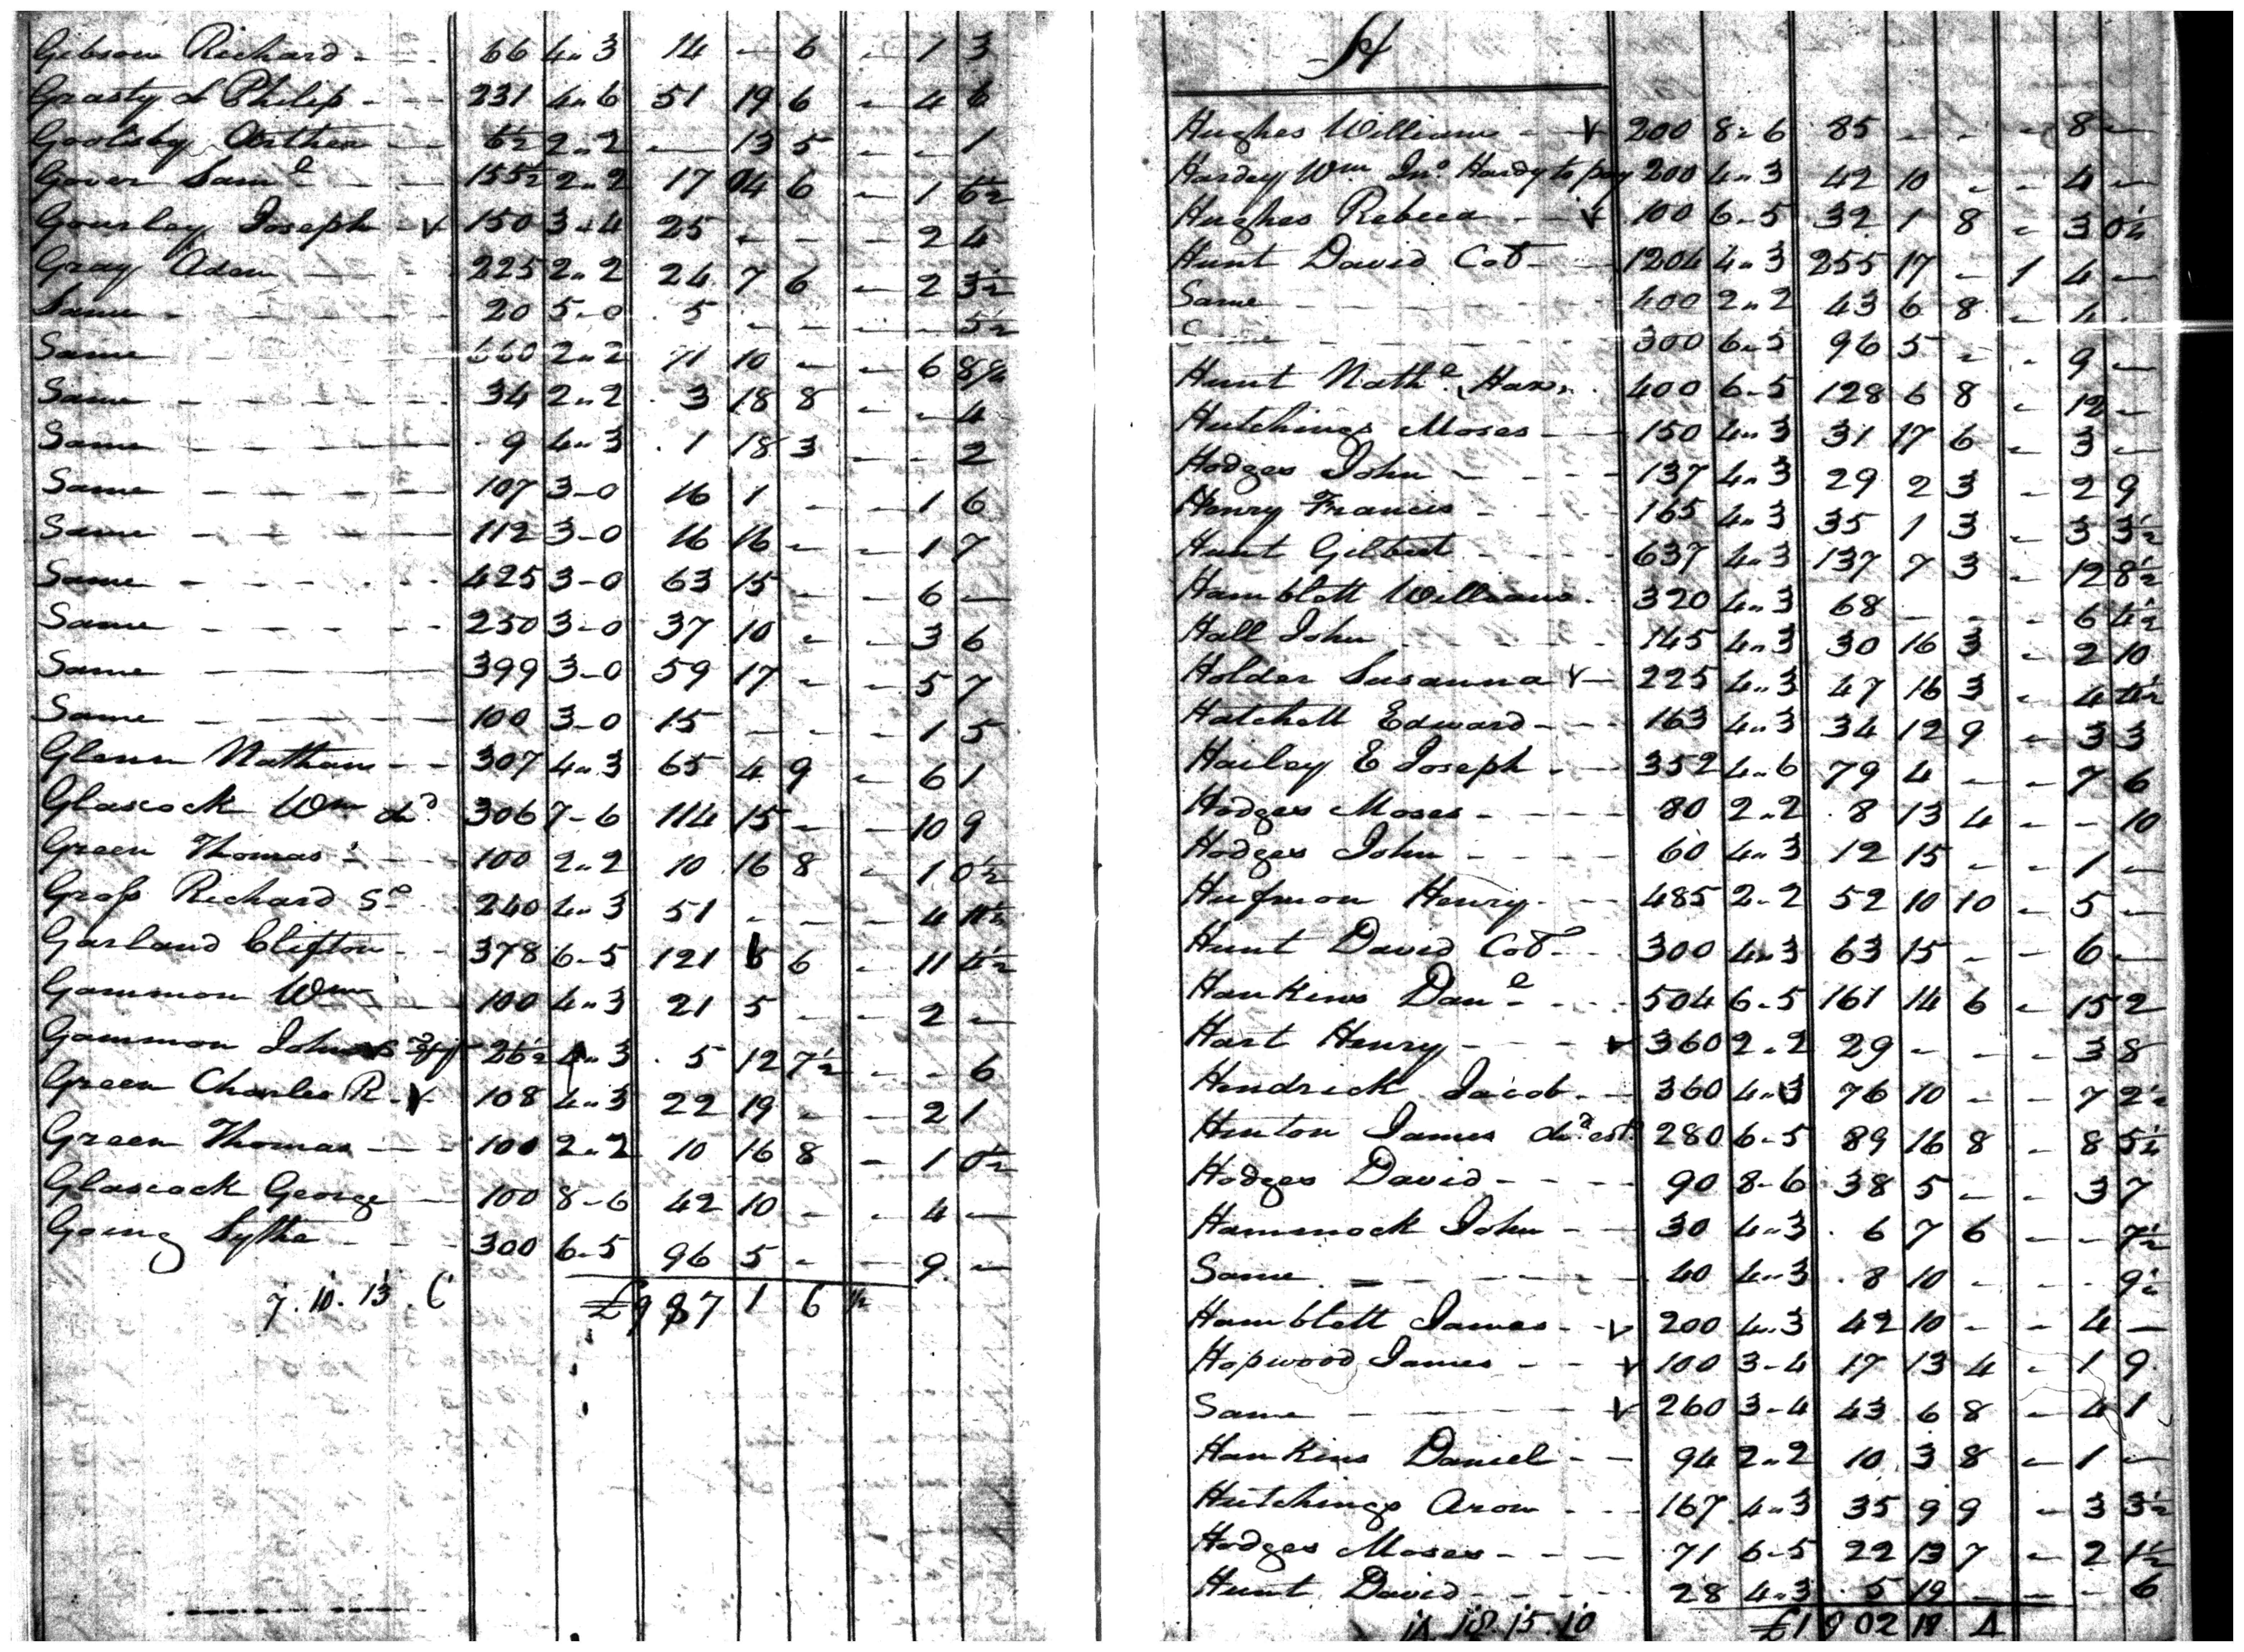 Gibson Richard - - - 66 4..3 14 - 6 - 1 3
Grasty d Philip - - - 231 4..6 51 19 6 - 4 6
Gootsby Arther - 6½ 2..2 - 13 5 - - 1
Gover Saml - - 155½ 2..2 17 04 6 - 1 6½
Gourley Joseph - v 150 3..4 25 - - - 2 4
Gray Aden - - 225 2..2 24 7 6 - 2 3½
Same - - - - 20 5..0 5 - - - - 5½
Same - - - - 660 2..2 71 10 - - 6 8½
Same - - - - 34 2..2 3 18 8 - - 4
Same - - - - 9 4..3 1 18 3 - - 2
Same - - - - 107 3-0 16 1 - - 1 6
Same - - - - 112 3-0 16 16 - - 1 7
Same - - - - 425 3-0 63 15 - - 6 -
Same - - - - 250 3-0 37 10 - - 3 6
Same - - - - 399 3-0 59 17 - - 5 7
Same - - - - 100 3-0 15 - - - 1 5
Glenn Nathan - - 307 4..3 65 4 9 - 6 1
Glascock Wm dd 306 7-6 114 15 - - 10 9
Green Thomas - - 100 2..2 10 16 8 - 1 0½
Gross Richard Sr 240 4..3 51 - - - 4
Garland Clifton - - 378 6-5 121 5 6 - 11 4½
Gammon Wm 100 4..3 21 5 - - 2 -
Gammon John 26½ 4..3 5 12 7½ - - 6
Green Charles R - v 108 4..3 22 19 - - 2 1
Green Thomas - - 100 2..2 10 16 8 - 1 0½
Glascock George - 100 8-6 42 10 - - 4 -
Going Sythe - - - 300 6-5 96 5 - - 9 -
7.10.13.6 £987 1 6 ½
H
Hughes William - v 200 8-6 85 - - - 8 -
Hardey Wm Jno. Hardy to pay 200 4..3 42 10 - - 4 -
Hughes Rebeca - - v 100 6-5 32 1 8 - 3 0½
Hunt David Cob - 1204 4..3 255 17 - 1 4 -
Same - - - - 400 2..2 43 6 8 - 4 -
Same - - - - 300 6-5 96 5 - - 9 -
Hunt Nathl, Har. 400 6-5 128 6 8 - 12 -
Hutchings Moses - - 150 4..3 31 17 6 - 3 -
Hodges John - - - 137 4..3 29 2 3 - 2 9
Henry Francis - - - 165 4..3 35 1 3 - 3 3½
Hunt Gilbert - - - 637 4..3 137 7 3 - 12 8½
Hamblett William - 320 4..3 68 - - - 6 4½
Hall John - - - - 145 4..3 30 16 3 - 2 10
Holder Susanna v - 225 4..3 47 16 3 - 4 4½
Hatchett Edward - - 163 4..3 34 12 9 - 3 3
Hailey E Joseph - - 352 4..6 79 4 - - 7 6
Hodges Moses - - - 80 2..2 8 13 4 - - 10
Hodges John - - - 60 4..3 12 15 - - 1 -
Hufmon Henry - - 485 2-2 52 10 10 - 5 -
Hunt David Cob - - 300 4..3 63 15 - - 6 -
Hankins Danl - - - 504 6-5 161 14 6 - 15 2
Hart Henry - - - v 360 2..2 29 - - - 3 8
Hendrick Jacob - - 360 4..3 76 10 - - 7 2½
Hinton James dd est. 280 6-5 89 16 8 - 8 5½
Hodges David - - - 90 8-6 38 5 - - 3 7
Hammock John - - 30 4..3 6 7 6 - - 7½
Same - - - - 40 4..3 8 10 - - - 9½
Hamblett James - - v 200 4..3 42 10 - - 4 -
Hopwood James - - v 100 3-4 17 13 4 - 1 9
Same - - - - v 260 3-4 43 6 8 - 4 1
Hankins Daniel - - 94 2..2 10 3 8 - 1 -
Hutchings Aron - - 167 4..3 35 9 9 - 3 3½
Hodges Moses - - - 71 6-5 22 13 7 - 2 1½
Hunt David - - - 28 4..3 5 19 - - - 6
18.15.10 £1902 18 4